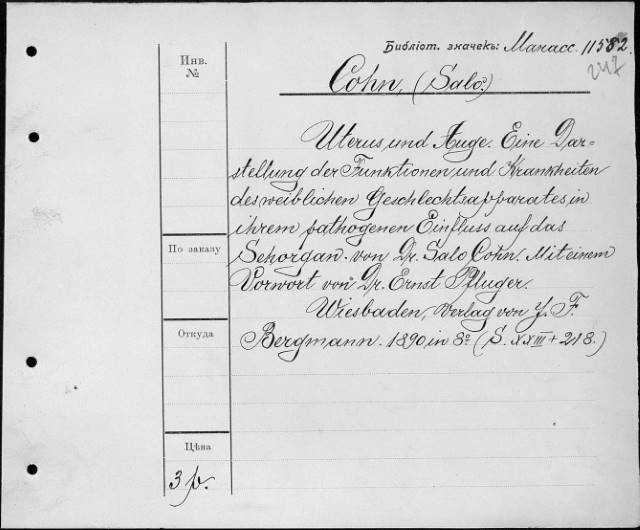 Библiот. значекъ: Манасс. 11582.
247
Инв.
№
Cohn, (Salo.)
Uterus, und Auge. Eine Dar-
stellung der Funktionen und Krankheiten
des weiblichen Geschlechtsapparates, in
ihrem pathogenen Einfluss auf das
Sehorgan. von Dr. Salo Cohn. Mit einem
Vorwort von Dr. Ernst Pfluger.
Wiesbaden, Verlag von J. F.
Bergmann. 1890, in 8º. (S. XXIII + 218.)
По заказу
Откуда
Цѣна
3 р.